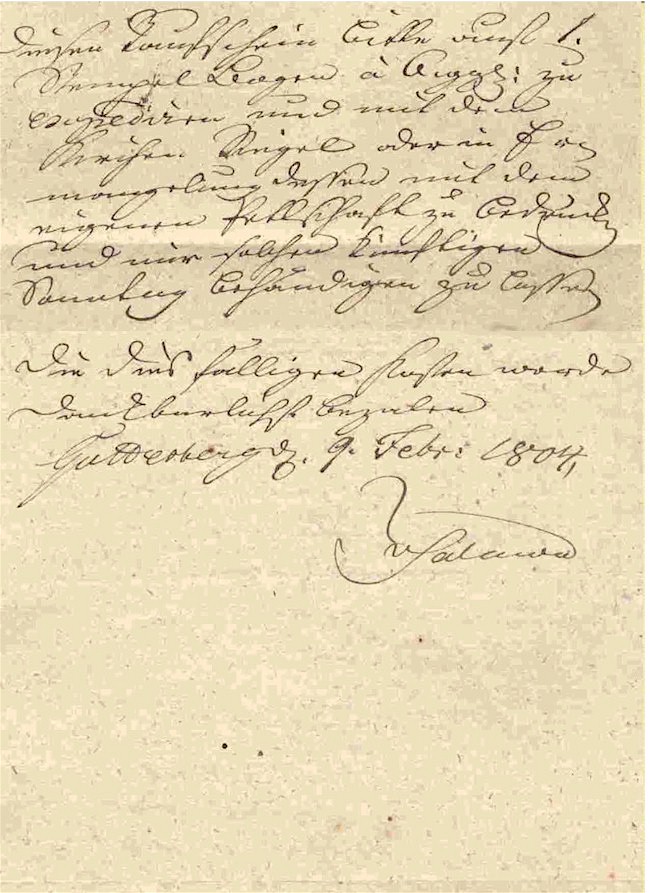 diesen Taufschein bitte aust 1.
Stempel Bogen à 6 ggl: zu
expediren und mit dem
Kirchen Siegel oder in Er
mangelung dessen mit dem
eigenen Pettschaft zu bedrucken
und mir solchen künftigen
Sonntag behändigen zu lassen
Die dies fälligen Kosten werde
dankbarlichst bezalen
Guttesberg d. 9. Febr: 1804